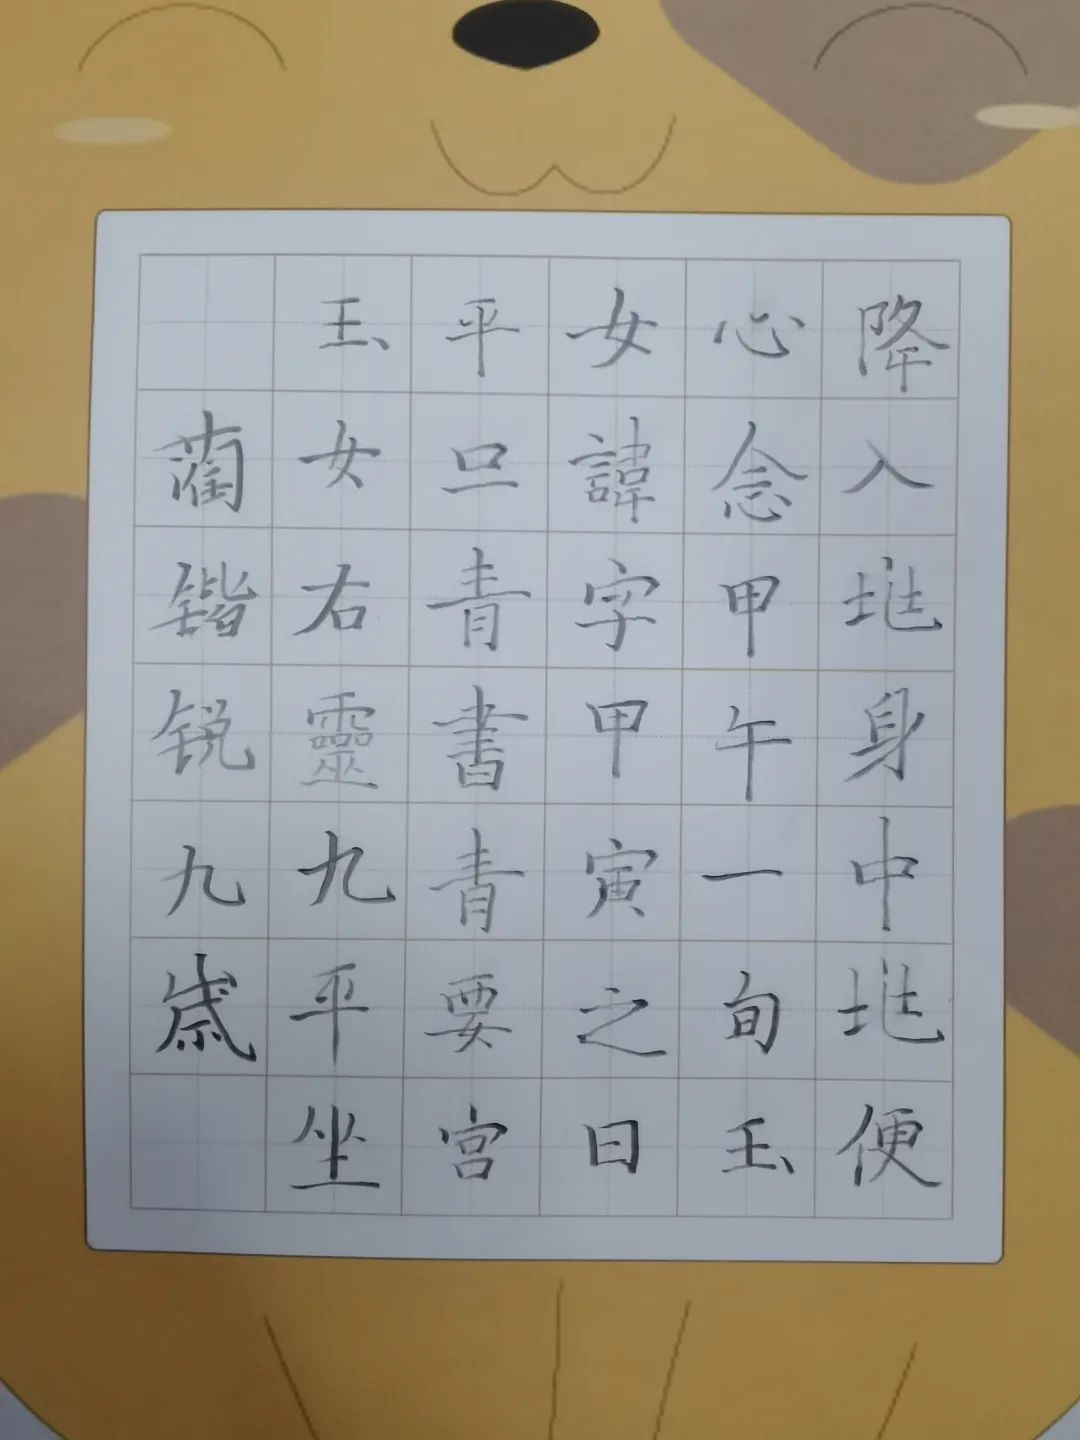 降入地身中地便
心念甲午一旬玉
女諱字甲寅之日
平旦青書青要宮
玉女右靈九平坐
蔺锴锐九歲